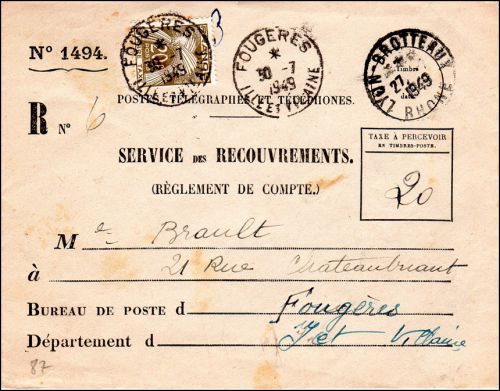 Nº 1494.
FOUGERES
30 -7
1949
ILLE ET VILAINE
FOUGERES
30 -7
1949
ILLE ET VILAINE
LYON-BROTTEAUX
Timbre
27
1949
RHONE
3
POSTES, TÉLÉGRAPHES ET TÉLÉPHONES.
R Nº 6
SERVICE DES RECOUVREMENTS.
(RÈGLEMENT DE COMPTE.)
TAXE À PERCEVOIR
EN TIMBRES-POSTE.
20
Me Brault
à 21 Rue Chateaubriant
BUREAU DE POSTE d Fougères
Département d Ict Vilaine
87